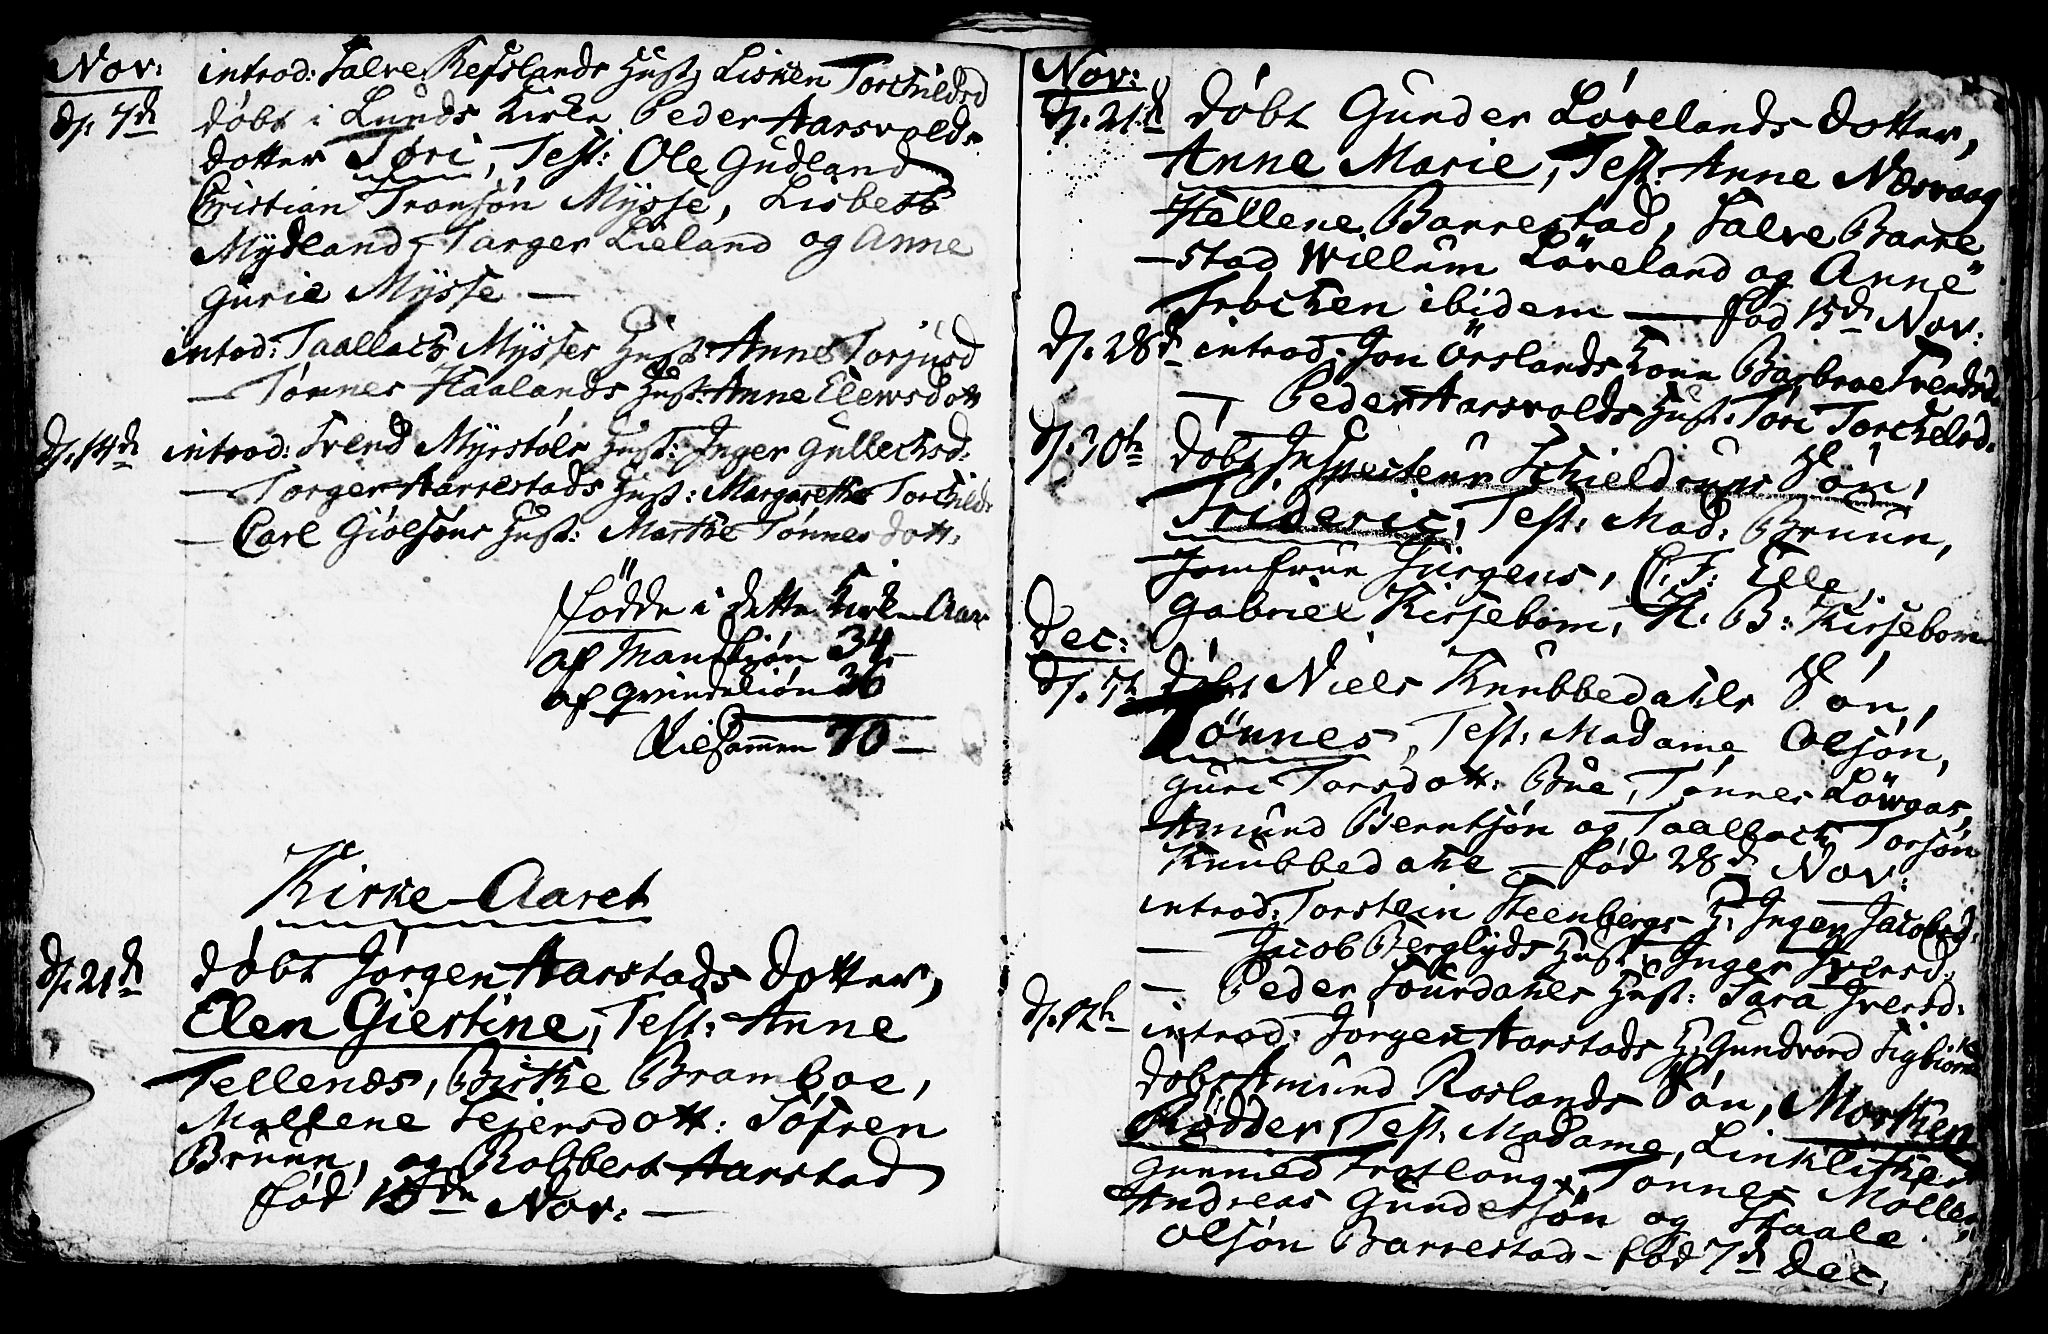 Nov:
introd: Salve Refslands Hust. Lisken Torchildsd
d. 7de døbt i Lunds Kirke Peder Aarsvolds
dotter Tøri, Test: Ole Gudland
Christian Tronsøn Mysse, Lisbeth
Mydland, Targer Lieland og Anne
Gurie Mysse —
introd: Taallach Mysses Hust: Anne Torjusd
— Tønnes Haalands Hust: Anne Elewsdott
d. 14de introd: Trend Myrstøls Hust: Inger Gullechsd:
— Torger Aarrestads Hust: Margarethe Torchildsd:
— Carl Giølsøns Hust: Marthe Tønnesdott:
fødde i dette Kirke-Aar
af Mandkiøn 34
af qvindekiøn 36
Tilsammen 70 —
Kirke-Aaret
d. 21de døbt Jørgen Aarstads dotter,
Elen Giertine, Test: Anne
Tellenes, Birthe Bramboe,
Mallene Sejersdott: Søfren
Bruun, og Robbert Aarstad
fød 15de Nov: —
Nov:
d. 21de døbt Gunder Løvelands dotter,
Anne Marie, Test: Anne Nesvaag
Hellene Barrestad, Salve Barre
-stad Willum Løveland og Anne
Trochen ibidem — fød 15de Nov:
d. 28de introd: Jon Ørslands Kone Barbroe Trendsd.
— Peder Aarsvolds Hust: Tøri Torchelsd.
d. 30te døbt Inspecteur Schieldrups Søn,
Frideric, Test: Mad: Bruun,
Jomfrue Jürgens, C. F: Elle,
Gabriel Kirsebom, H: B: Kirsebom
Dec:
d. 5te døbt Niels Knubbedahls Søn,
Tønnes, Test: Madame Olsøn,
Guri Torsdott: Bue, Tønnes Løwaas,
Amund Berntsøn og Taallach Torsøn
Knubbedahl — fød 28de Nov:
introd: Torstein Steenbergs H: Inger Jacobsd:
— Jacob Berglyds Hust: Inger Iversd:
— Peder Suurdahls Hust: Sara Iversd:
d. 12te introd: Jørgen Aarstads H: Gundvord Sigbiørns
døbt Amund Roslands Søn, Morthen
Rødder, Test: Madame Link Lisken
Gunnild Trotlong, Tønnes Møller
Andreas Gundersøn og Staale
Olsøn Barrestad - fød 7de Dec: